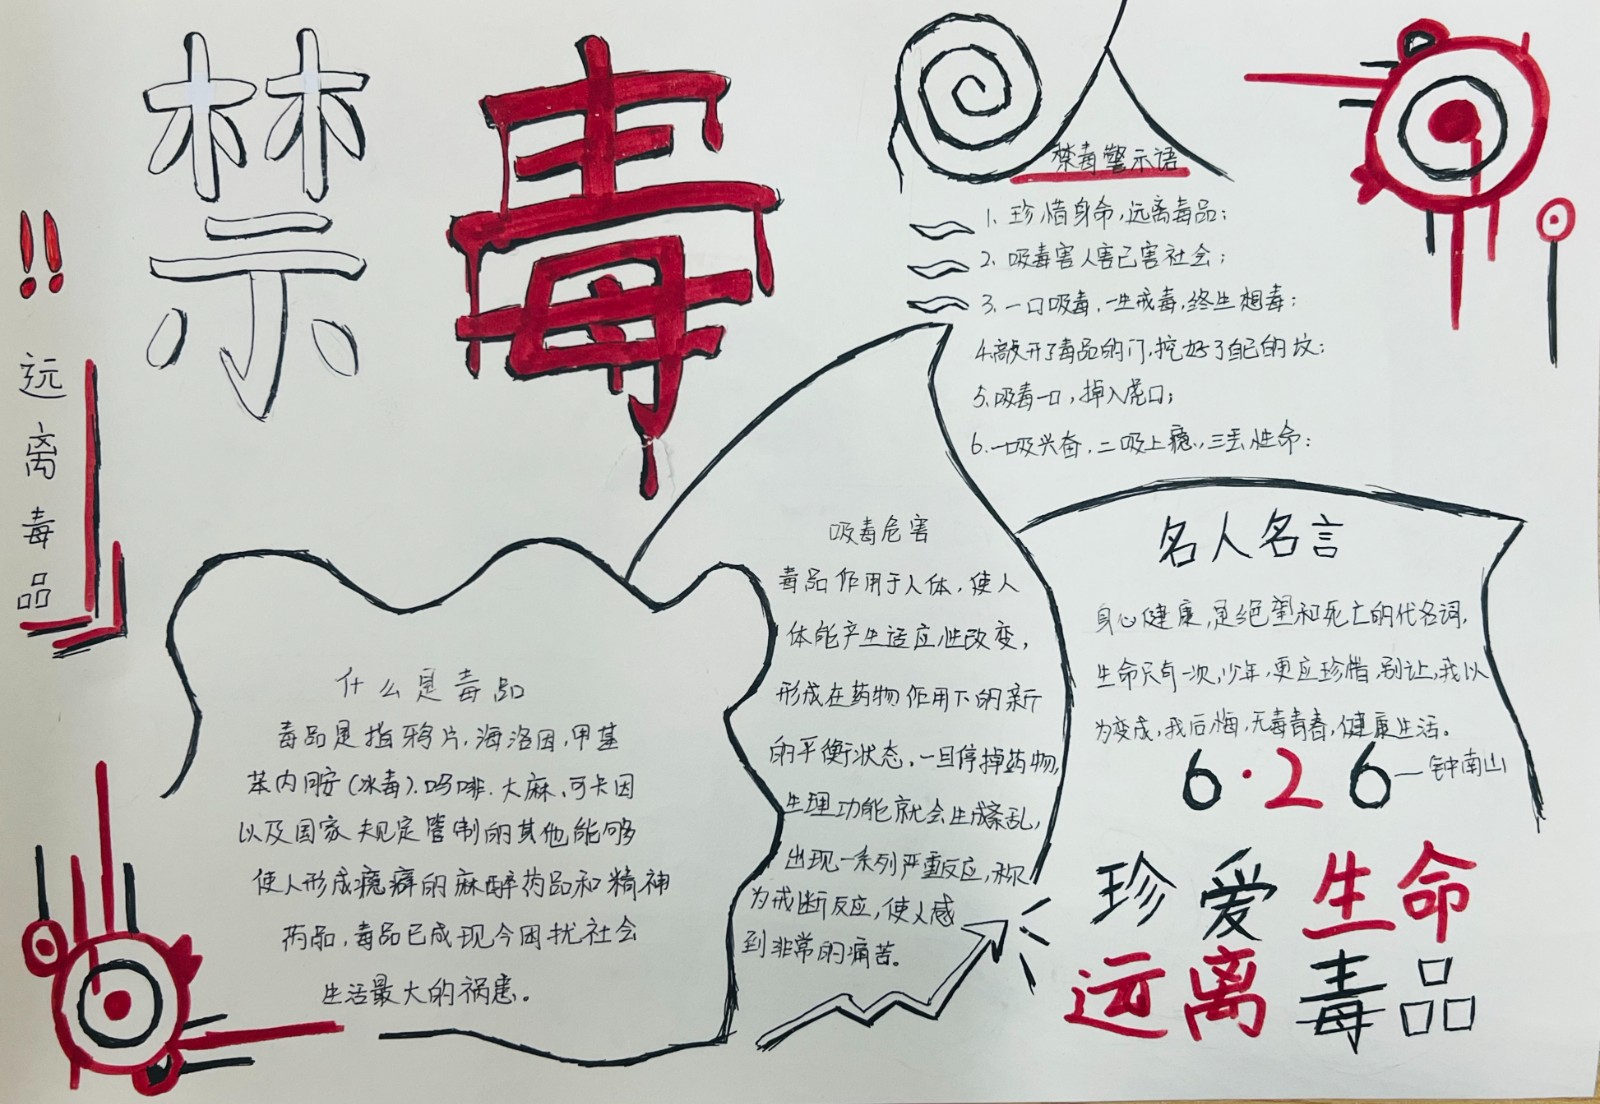 禁毒
!!
远离毒品
禁毒警示语
1. 珍惜身命,远离毒品;
2. 吸毒害人害己害社会;
3. 一口吸毒,一生戒毒,终生想毒;
4.敲开了毒品的门,挖好了自己的坟;
5.吸毒一口,掉入虎口;
6.一吸兴奋,二吸上瘾,三丢性命;
什么是毒品
毒品是指鸦片,海洛因,甲基
苯丙胺(冰毒),吗啡,大麻,可卡因
以及国家规定管制的其他能够
使人形成瘾癖的麻醉药品和精神
药品,毒品已成现今困扰社会
生活最大的祸患。
吸毒危害
毒品作用于人体,使人
体能产生适应性改变,
形成在药物作用下的新
的平衡状态,一旦停掉药物,
生理功能就会生成紊乱,
出现一系列严重反应,称
为戒断反应,使人感
到非常的痛苦。
名人名言
身心健康,是绝望和死亡的代名词,
生命只有一次,少年,更应珍惜,别让,我以
为变成,我后悔,无毒青春,健康生活。
——钟南山
6·26
珍爱生命
远离毒品